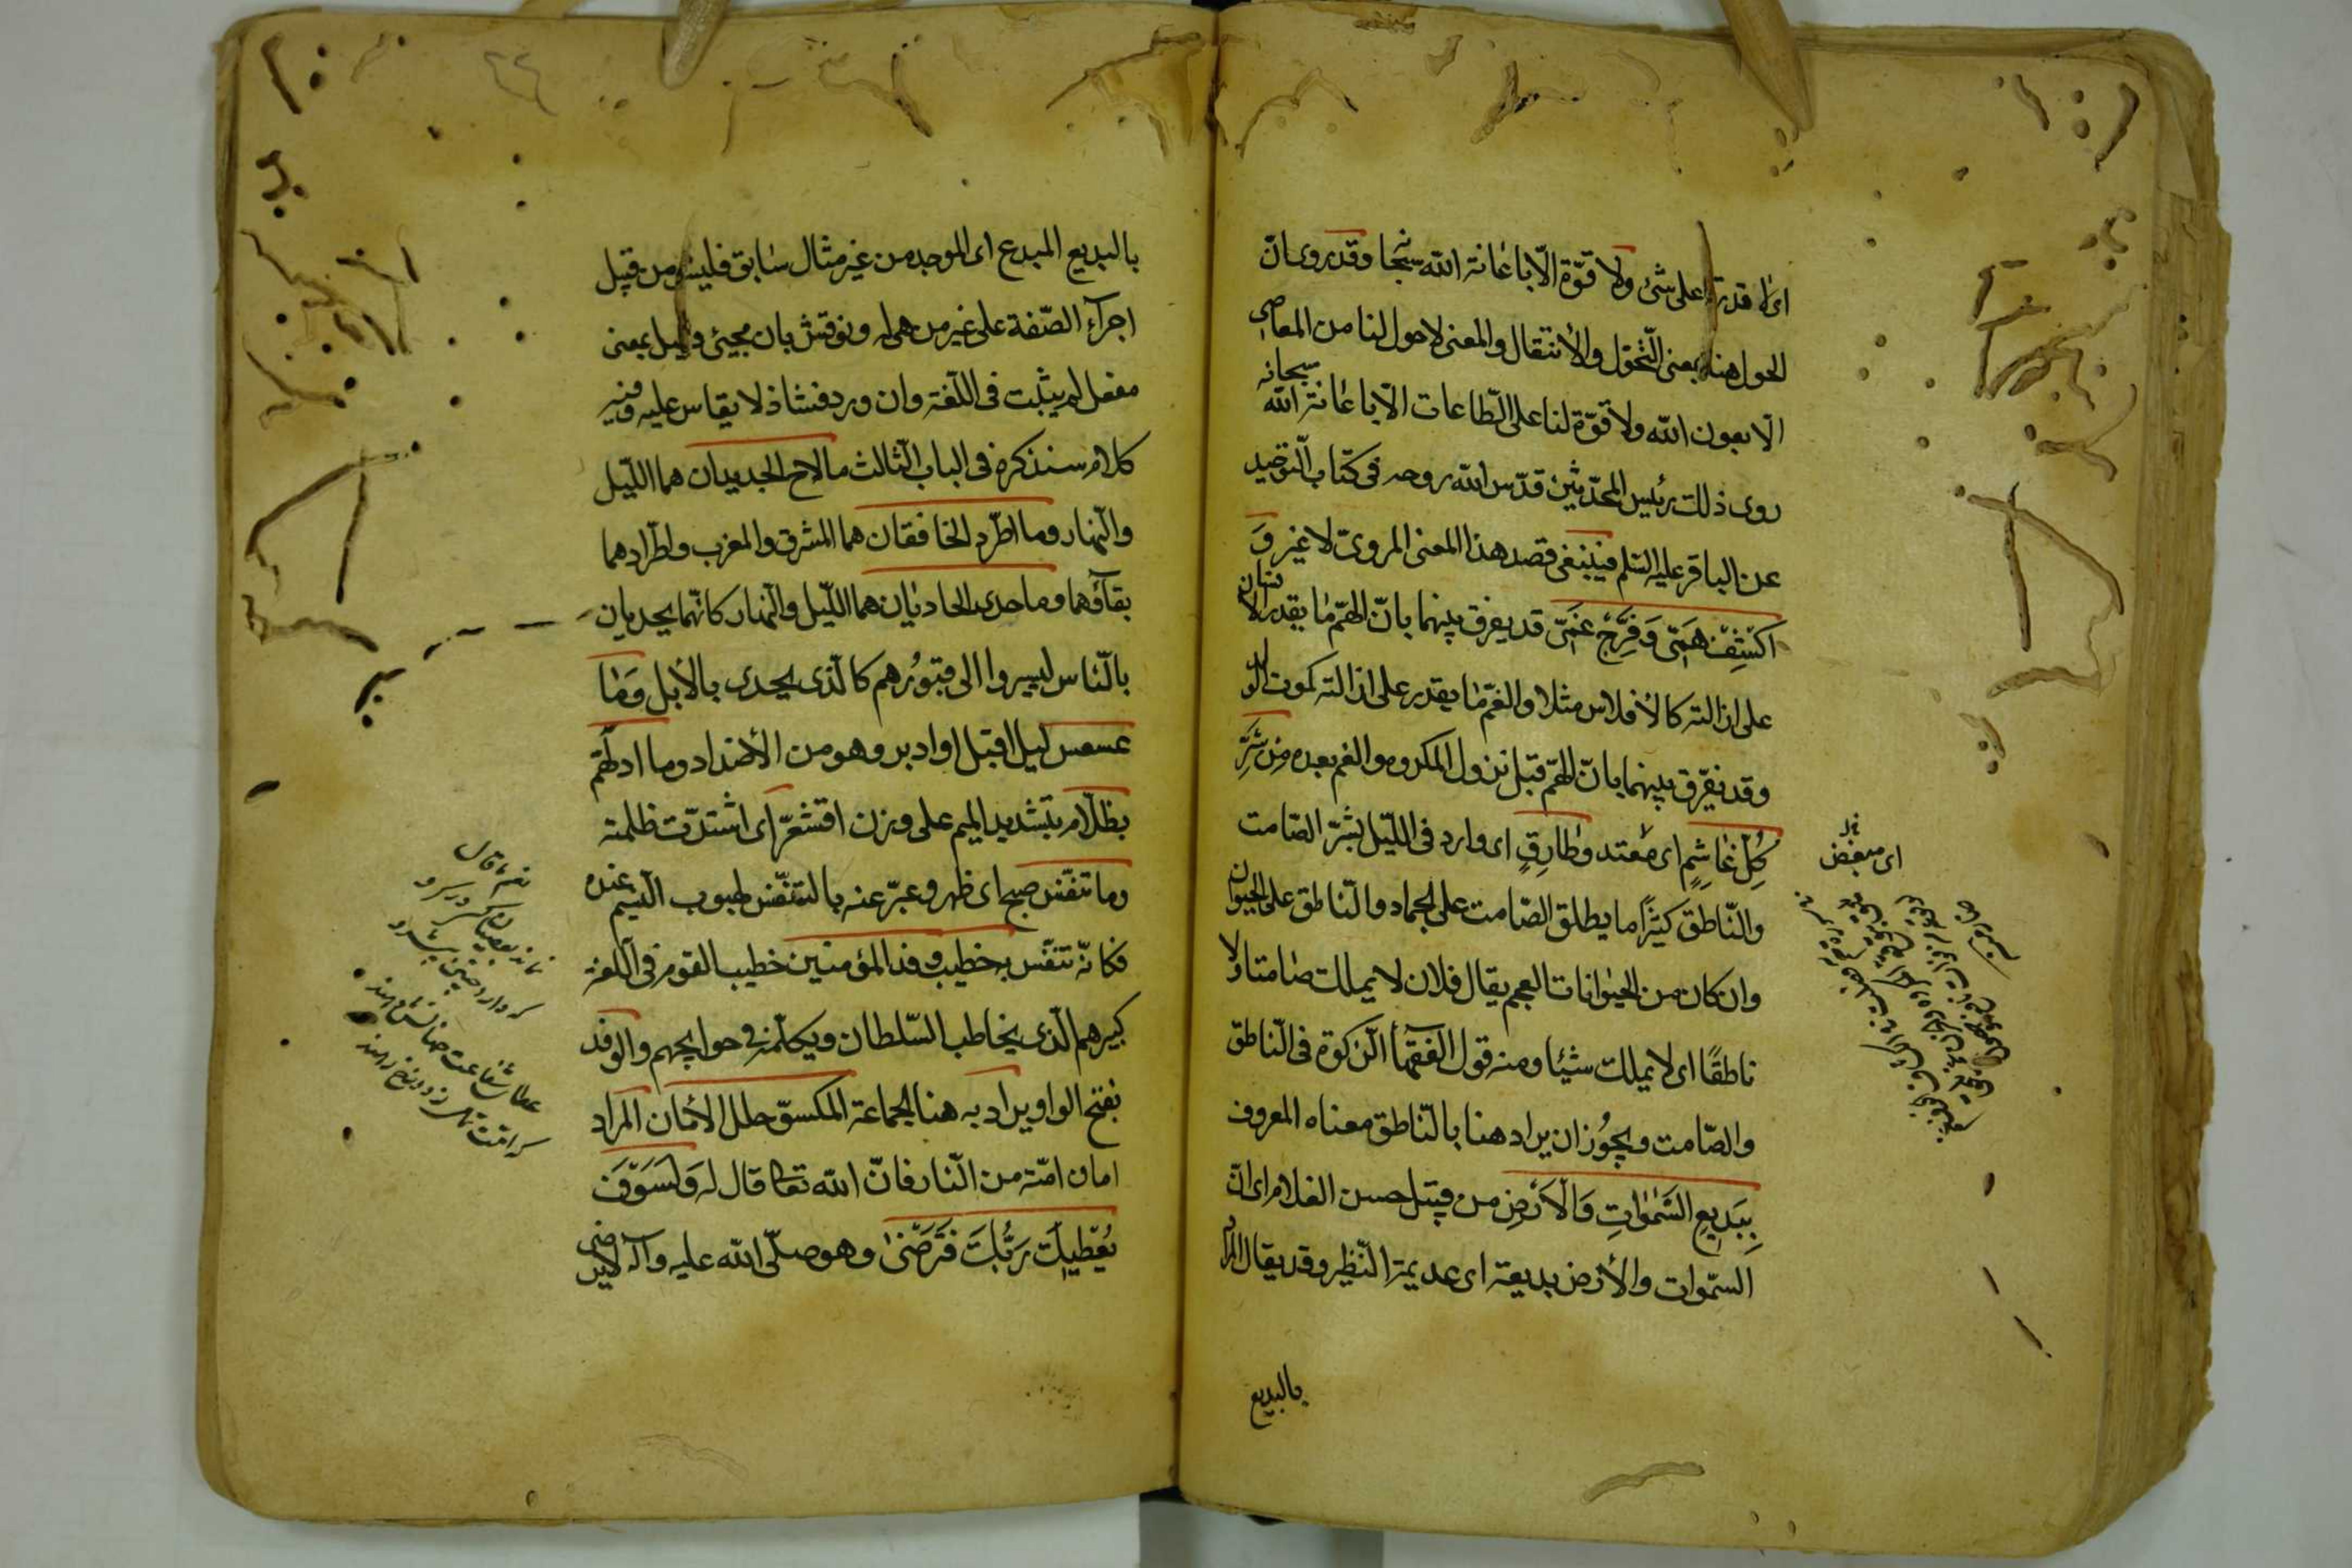 اى لا قدرة على شئ ولا قوّة الّا باعانة الله سبحا وقد روى انّ
الحول هنا بمعنى التّحوّل والأنتقال والمعنى لا حول لنا من المعاصى
الّا بعون الله ولا قوّة لنا على الطّاعات الّا باعانة الله سبحانه
روى ذلك رئيس المحدّثين قدّس الله روحه فى كتاب التّوحيد
عن الباقر عليه السّلم فينبغى قصد هذا المعنى المروىّ لا غير وَ
اكْشِفْ هَمّى وَفَرِّجْ غَمّى قد يفرق بينهما بانّ الهمّ ما يقدر الانسان
على ازالته كالأفلاس مثلا والغمّ ما يقدر على ازالته كموت الولد
وقد يفرّق بينهما بانّ الهمّ قبل نزول المكروه والغم بعده مِن شَرِّ
كُلِّ غاشِمٍ اى مُعتد وطارِقٍ اى وارد فى اللّيل بشرّ الصّامت
والنّاطق كثيرًا ما يطلق الصّامت على الجماد والنّاطق على الحيوان
وان كان من الحيوانات العجم يقال فلان لا يملك صامتا ولا
ناطقًا اى لا يملك شيئا ومنه قول الفقهآء الزّكوة فى النّاطق
والصّامت ويجوُز ان يراد هنا بالنّاطق معناه المعروف
بِبَديعِ السَّمٰواتِ وَالأَرْضِ من قبيل حسن الغلام اى انّ
السّموات والأرض بديعة اى عديمة النّظير وقد يقال المراد
بالبديع
اى مبغض
بالبديع المبدع اى الموجد من غير مثال سابق فليس من قبيل
اجرآء الصّفة على غير من هى له ونوقش بان مجيئ فعيل بمعنى
مفعل لم يثبت فى اللّغة وان ورد فشاذ لا يقاس عليه وفيه
كلام سنذكره فى الباب الثّالث ما لاح الجديدان هما اللّيل
والنّهار وما اطّرد الخافقان هما المشرق والمغرب واطّرادهما
بقآؤهما وما حدى الحاديان هما اللّيل والنّهار كانّهما يحديان
بالنّاس ليسيروا الى قبوُرهم كالّذى يحدى بالأبل وَما
عسعس ليل اقبل او ادبر وهو من الأضداد وما ادلهّم
بظلّام بتشديد الميم على وزن اقشعرّ اى اشتدّت ظلمته
وما تنفّس صبح اى ظهر وعبّر عنه بالتنفّس لهبوب النّسيم عنده
فكانّه تنفّس به خطيب وفد المؤمنين خطيب القوم فى اللّغة
كبيرهم الّذى يخاطب السّلطان ويكلّمه فى حوايجهم والوفد
بفتح الواو يراد به هنا الجماعة المكسوّ حلل الأمان المراد
امان امّته من النّار فانّ الله تعالى قال له وَلَسَوْفَ
يُعْطيكَ رَبُّكَ فَتَرضىٰ وهو صلّى الله عليه وآله لا يرضى
نعم ما قال